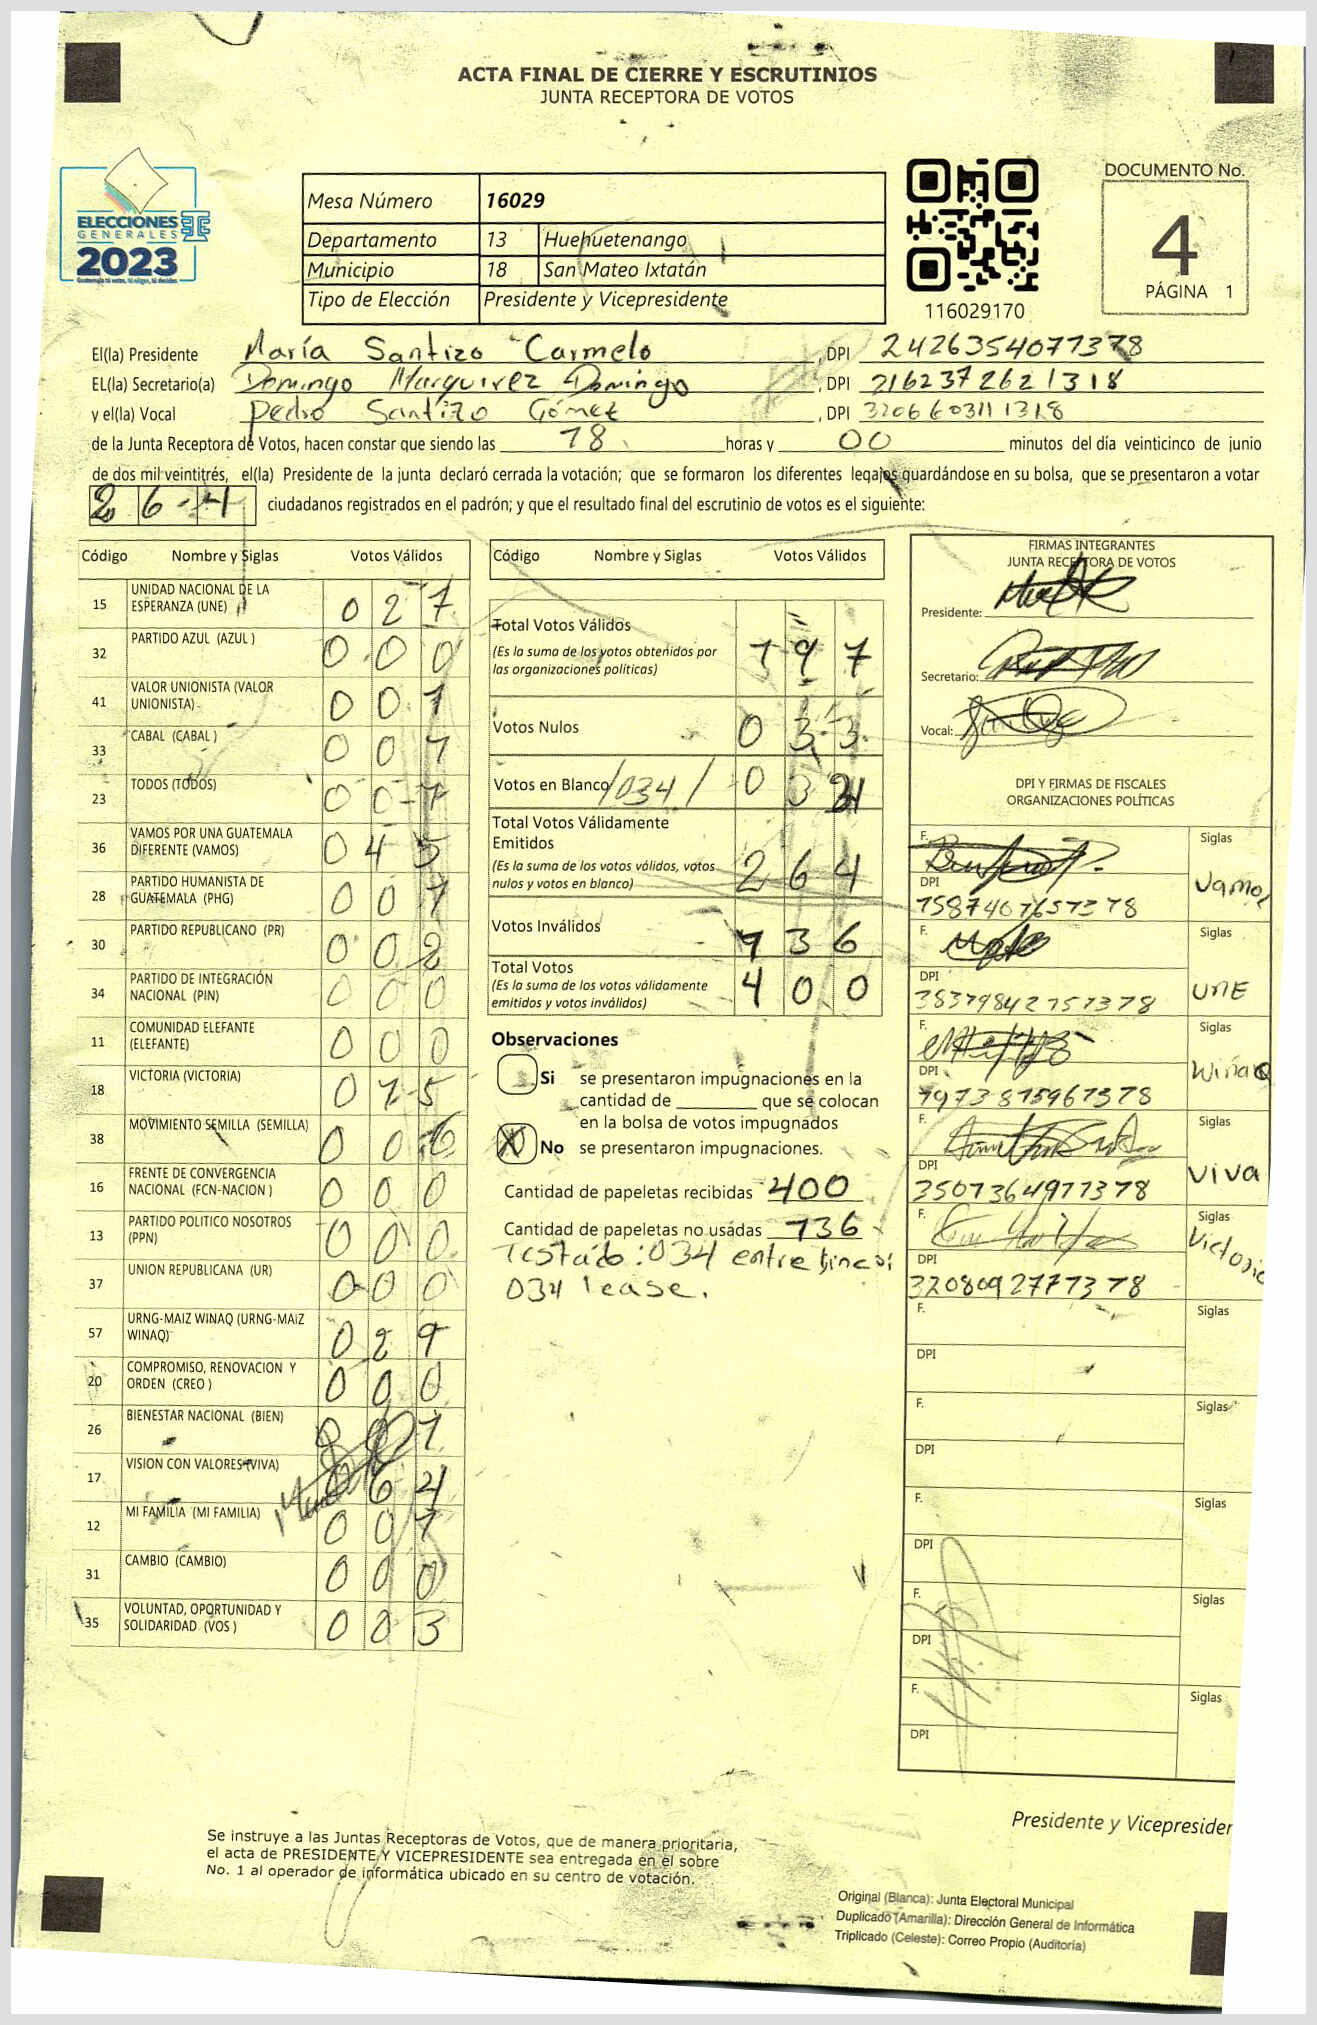 ACTA FINAL DE CIERRE Y ESCRUTINIOS
JUNTA RECEPTORA DE VOTOS
ELECCIONES
GENERALES
2023
Mesa Número 16029
Departamento 13 Huehuetenango
Municipio 18 San Mateo Ixtatán
Tipo de Elección Presidente y Vicepresidente
116029170
DOCUMENTO No.
4
PÁGINA 1
El(la) Presidente María Santizo Carmelo , DPI
EL(la) Secretario(a) Domingo Domingo , DPI 2162372621318
y el(la) Vocal Pedro Santizo Gómez , DPI
de la Junta Receptora de Votos, hacen constar que siendo las 18 horas y 00 minutos del día veinticinco de junio
de dos mil veintitrés, el(la) Presidente de la junta declaró cerrada la votación; que se formaron los diferentes legajos guardándose en su bolsa, que se presentaron a votar
264 ciudadanos registrados en el padrón; y que el resultado final del escrutinio de votos es el siguiente:
Código Nombre y Siglas Votos Válidos
15 UNIDAD NACIONAL DE LA ESPERANZA (UNE) 027
32 PARTIDO AZUL (AZUL ) 000
41 VALOR UNIONISTA (VALOR UNIONISTA) 001
33 CABAL (CABAL ) 001
23 TODOS (TODOS) 001
36 VAMOS POR UNA GUATEMALA DIFERENTE (VAMOS) 045
28 PARTIDO HUMANISTA DE GUATEMALA (PHG) 001
30 PARTIDO REPUBLICANO (PR) 002
34 PARTIDO DE INTEGRACIÓN NACIONAL (PIN) 000
11 COMUNIDAD ELEFANTE (ELEFANTE) 000
18 VICTORIA (VICTORIA) 015
38 MOVIMIENTO SEMILLA (SEMILLA) 006
16 FRENTE DE CONVERGENCIA NACIONAL (FCN-NACION ) 000
13 PARTIDO POLITICO NOSOTROS (PPN) 000
37 UNION REPUBLICANA (UR) 000
57 URNG-MAIZ WINAQ (URNG-MAIZ WINAQ) 029
20 COMPROMISO, RENOVACION Y ORDEN (CREO ) 000
26 BIENESTAR NACIONAL (BIEN) 001
17 VISION CON VALORES (VIVA) 064
12 MI FAMILIA (MI FAMILIA) 001
31 CAMBIO (CAMBIO) 000
35 VOLUNTAD, OPORTUNIDAD Y SOLIDARIDAD (VOS ) 003
Código Nombre y Siglas Votos Válidos
Total Votos Válidos 197
(Es la suma de los votos obtenidos por
las organizaciones políticas)
Votos Nulos 033
Votos en Blanco /034/ 034
Total Votos Válidamente
Emitidos 264
(Es la suma de los votos válidos, votos
nulos y votos en blanco)
Votos Inválidos 136
Total Votos 400
(Es la suma de los votos válidamente
emitidos y votos inválidos)
Observaciones
Si se presentaron impugnaciones en la
cantidad de ________ que se colocan
en la bolsa de votos impugnados
X No se presentaron impugnaciones.
Cantidad de papeletas recibidas 400
Cantidad de papeletas no usadas 136
Testado: 034 entre
034 lease.
FIRMAS INTEGRANTES
JUNTA RECEPTORA DE VOTOS
Presidente:
Secretario:
Vocal:
DPI Y FIRMAS DE FISCALES
ORGANIZACIONES POLÍTICAS
F. Siglas
DPI Vamos
F. Siglas
DPI UNE
F. Siglas
DPI Winaq
F. Siglas
DPI VIVA
F. Siglas
DPI Victoria
F. Siglas
DPI
F. Siglas
DPI
F. Siglas
DPI
F. Siglas
DPI
F. Siglas
DPI
Presidente y Vicepresiden
Se instruye a las Juntas Receptoras de Votos, que de manera prioritaria,
el acta de PRESIDENTE Y VICEPRESIDENTE sea entregada en el sobre
No. 1 al operador de informática ubicado en su centro de votación.
Original (Blanca): Junta Electoral Municipal
Duplicado (Amarilla): Dirección General de Informática
Triplicado (Celeste): Correo Propio (Auditoría)